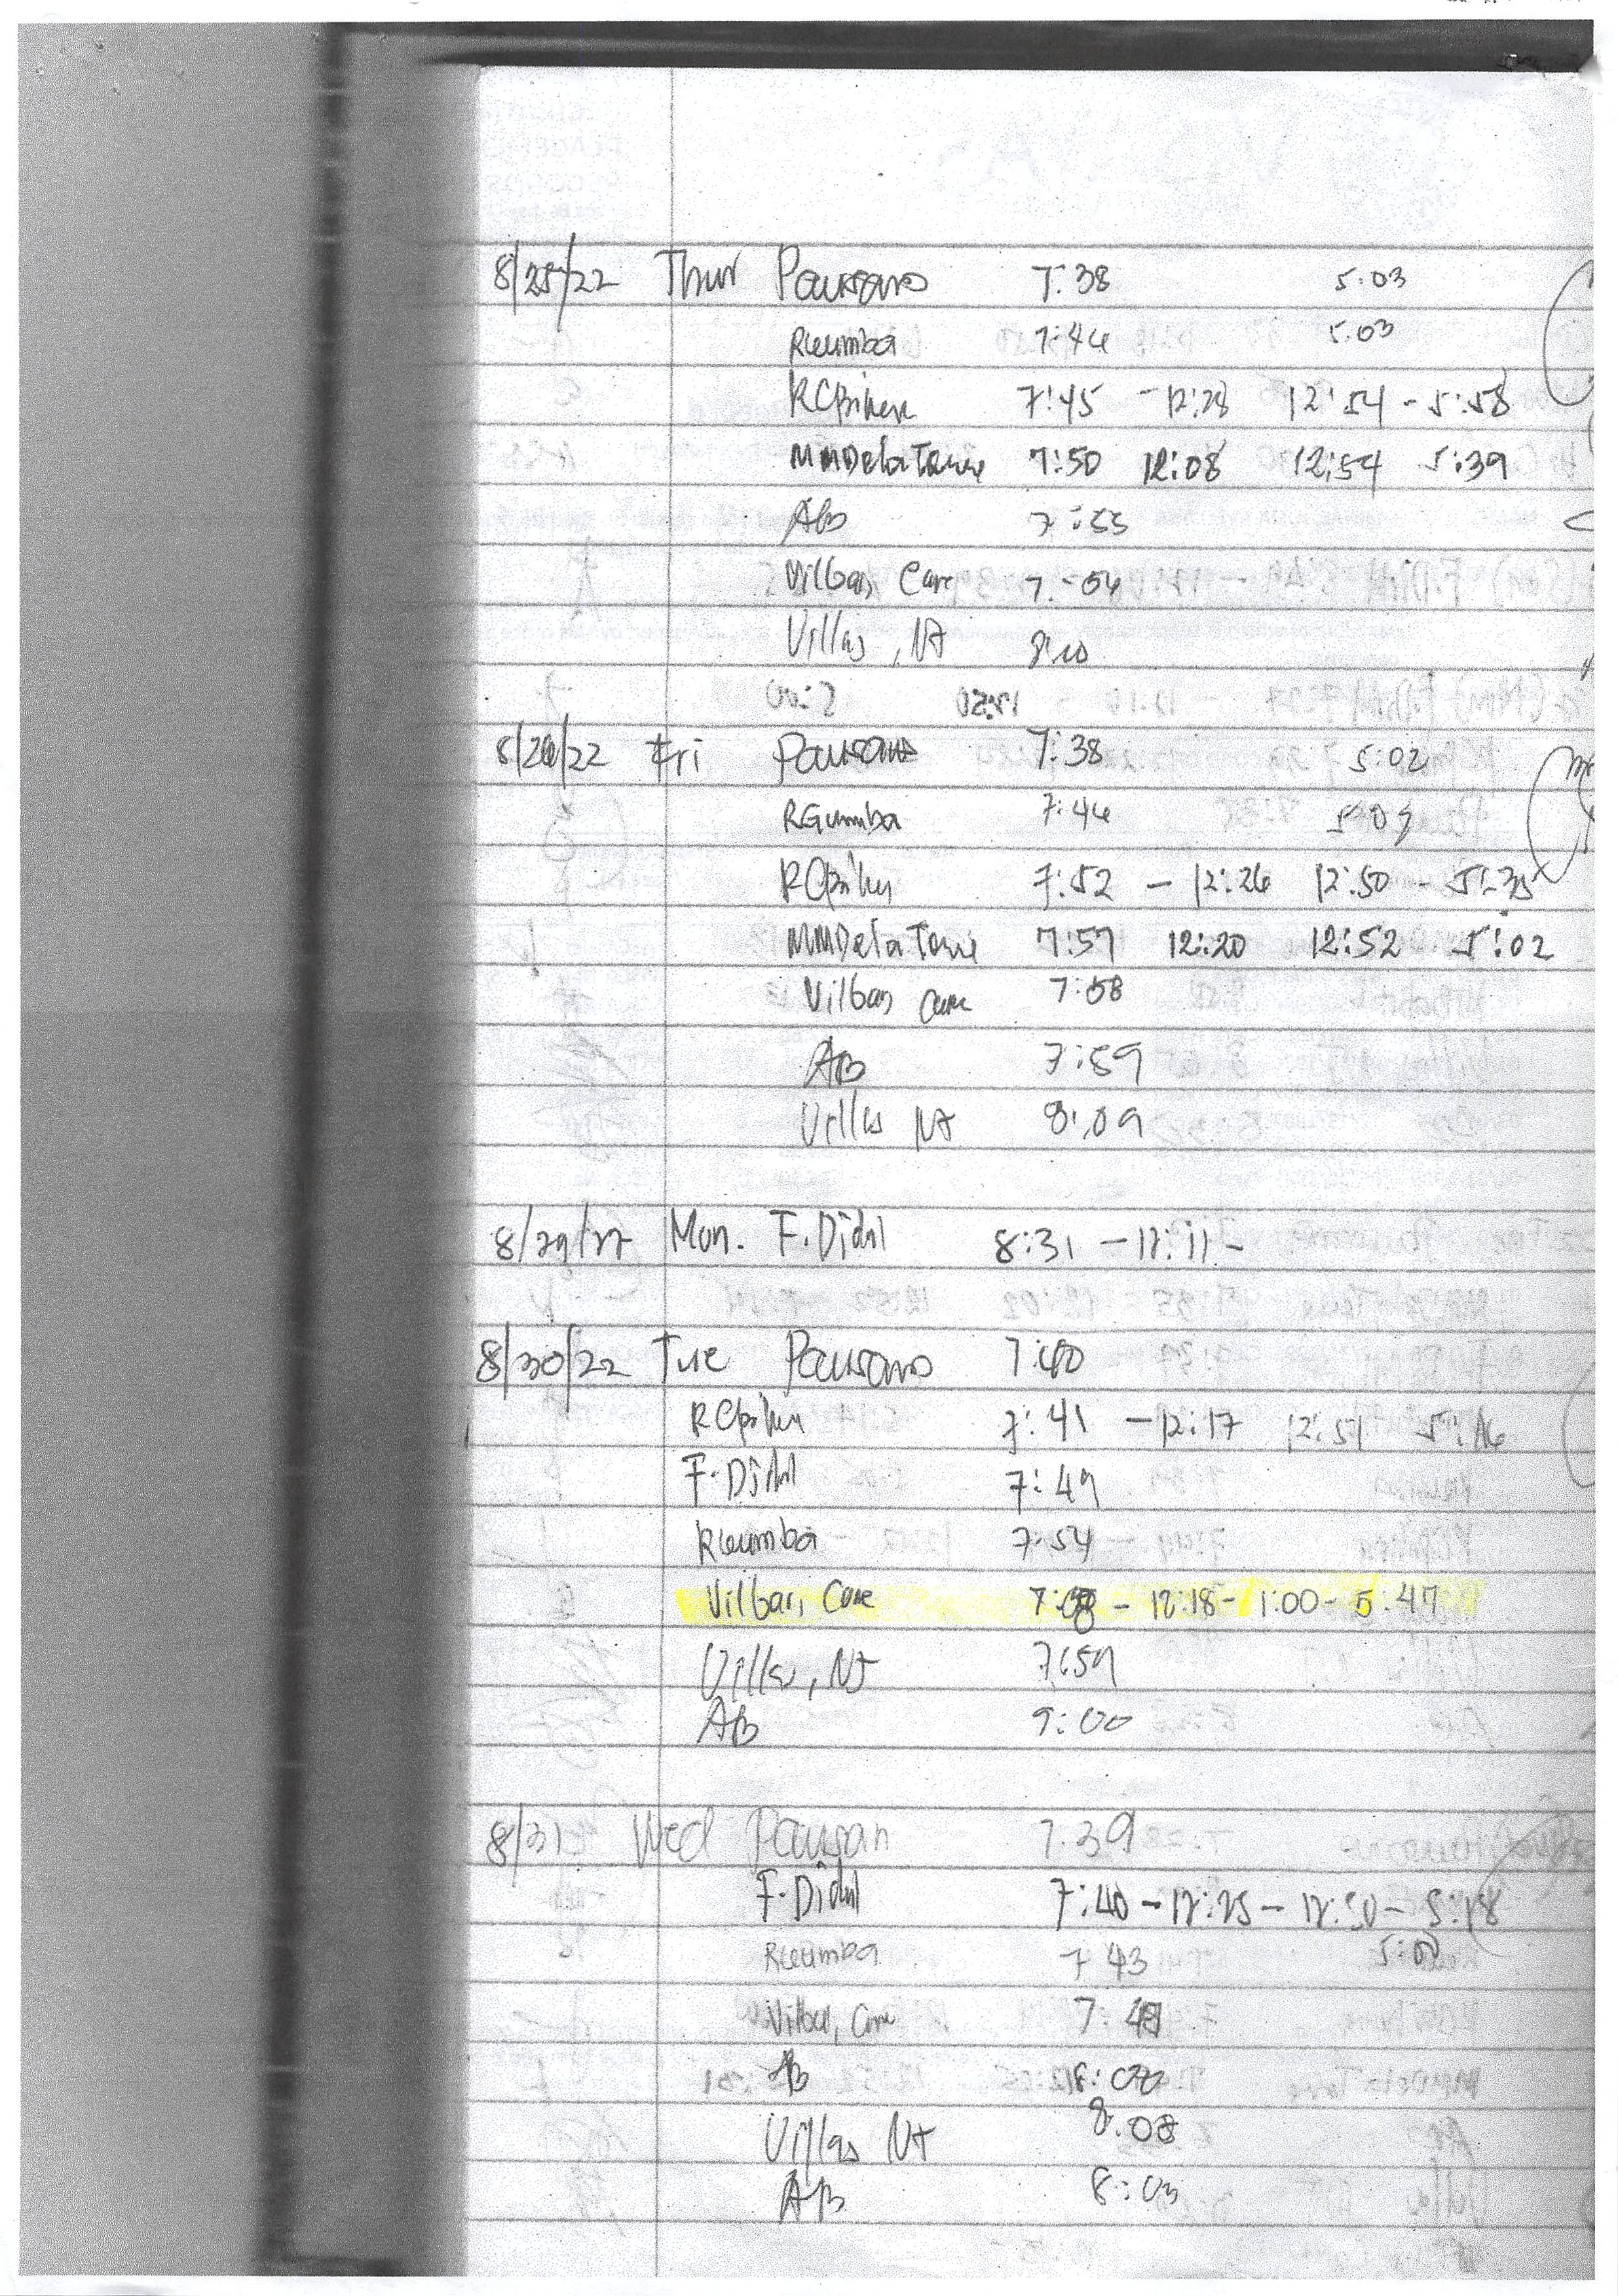 8/25/22 Thur Pausano 7:38 5:03
RGumba 7:46 5:03
7:45 - 12:23 12:54 - 5:58
MMDelaTorre 7:50 12:08 12:54 5:39
AB 7:55
Vilbar, Care 7:54
Villas, NJ 8:10
8/26/22 Fri Pausano 7:38 5:02
RGumba 7:46 5:09
7:52 - 12:26 12:50 - 5:35
MMDelaTorre 7:57 12:20 12:52 5:02
Vilbar, Care 7:58
AB 7:59
Villas NJ 8:09
8/29/22 Mon. F. Didal 8:31 - 12:11 -
8/30/22 Tue Pausano 7:40
7:41 - 12:17 12:51 5:16
F. Didal 7:49
RGumba 7:54
Vilbar, Care - 12:18 - 1:00 - 5:47
Villas, NJ 7:59
AB 9:00
8/31 Wed Pausan 7:39
F. Didal 7:40 - 12:25 - 12:50 - 5:18
RGumba 7 43
Vilbar, Care
AB 8:00
Villas NJ 8:08
AB 8:03